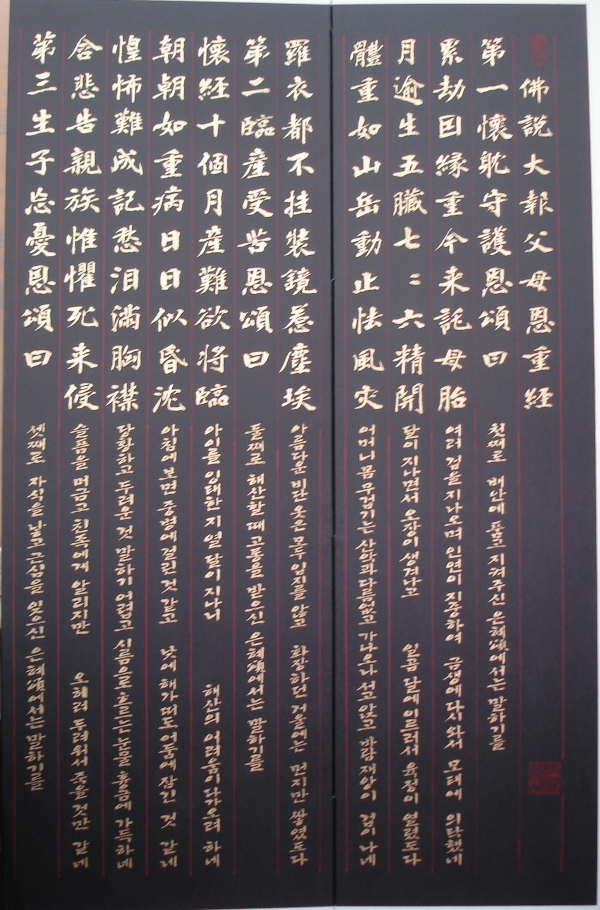 佛說大報父母恩重經
第一懷躭守護恩頌曰 첫째로 배안에 품고 지켜주신 은혜頌에서는 말하기를
累劫因緣重今来託母胎 여러 겁을 지나오며 인연이 지중하여 금생에 다시 와서 모태에 의탁했네
月逾生五臟七〻六精開 달이 지나면서 오장이 생겨나고 일곱 달에 이르러서 육정이 열렸도다
體重如山岳動止怯風灾 어머니 몸 무겁기는 산악과 다름없고 가나오나 서고 앉고 바람재앙이 겁이 나네
羅衣都不挂裝鏡惹塵埃 아름다운 비단옷은 모두 입지를 않고 화장하던 거울에는 먼지만 쌓였도다
第二臨産受苦恩頌曰 둘째로 해산할 때 고통을 받으신 은혜頌에서는 말하기를
懷經十個月産難欲將臨 아이를 잉태한지 열 달이 지나니 해산의 어려움이 다가오려 하네
朝朝如重病日日似昏沈 아침에 보면 중병에 걸린 것 같고 낮에 해가 떠도 어둠에 잠긴 것 같네
惶怖難成記愁泪滿胸襟 당황하고 두려운 것 말하기 어렵고 시름으로 흐르는 눈물 흉금에 가득하네
含悲告親族惟懼死来侵 슬픔을 머금고 친족에게 알리지만 오히려 두려워서 죽을것만 같네
第三生子忘憂恩頌曰 셋째로 자식을 낳고 근심을 잊으신 은혜頌에서는 말하기를